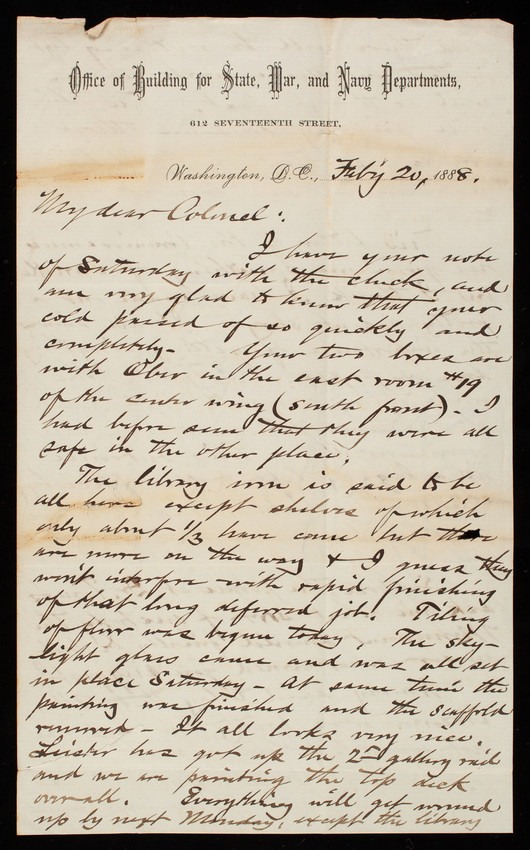 Office of Building for State, War, and Navy Departments,
612 SEVENTEENTH STREET,
Washington, D.C., Feb'y 20, 1888.
My dear Colonel:
I have your note
of Saturday with the check, and
am very glad to know that your
cold passed of so quickly and
completely - Your two boxes are
with Ober in the east room #19
of the center wing (south front) - I
had before seen that they were all
safe in the other place.
The library iron is said to be
all here except shelves of which
only about 1/3 have come but there
are more on the way & I guess they
won't interfere with rapid finishing
of that long deferred job. Tiling
of floor was begun today. The sky-
light glass came and was all set
in place Saturday - At same time the
painting was finished and the scaffold
removed - It all looks very nice.
Leister has got up the 2nd gallery rail
and we are painting the top deck
over all. Everything will get wound
up by next Monday, except the library